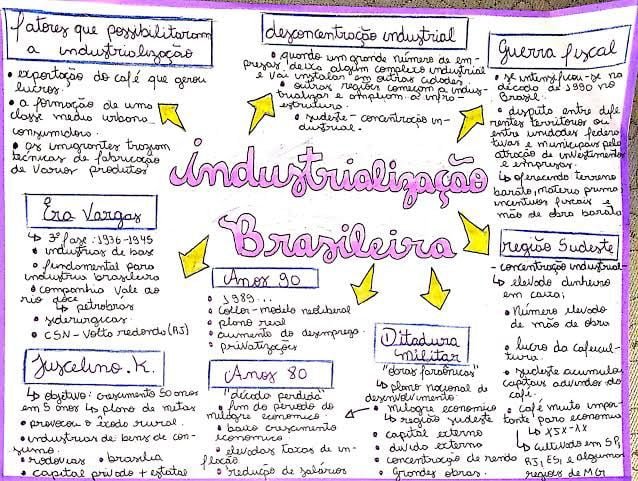 fatores que possibilitaram
a industrialização
• exportação do café que gerou
lucros
• a formação de uma
classe media urbana
consumidora.
• os imigrantes trazem
técnicas de fabricação
de varios produtos
desconcentração industrial
• quando um grande número de em-
presas deixa algum complexo industrial
e vai instalar em outras cidades.
• outras regiões começam a indus-
trializar e ampliam a infra-
estrutura.
• sudeste - concentração in-
dustrial.
Guerra fiscal
• se intensificou-se na
década de 1990 no
Brasil.
• disputa entre dife
rentes territórios ou
entre unidades federa-
tivas e municipais pela
atração de investimentos
e empresas.
↳ oferecendo terreno
barato, materia prima
incentivos fiscais e
mão de obra barata
industrialização
Brasileira
Era Vargas
↳ 3ª fase: 1936-1945
• industrias de base
• fundamental para
industria brasileira
• companhia Vale do
rio doce ↳ petrobrás
• siderurgicas
• CSN - Volta redonda (RJ)
Anos 90
• 1989...
• collor - modelo neoliberal
• plano real
• aumento do desemprego
• privatizações
região Sudeste
- concentração industrial
↳ elevado dinheiro
em caixa;
• Número elevado
de mão de obra
• lucro da cafeicul-
tura.
• sudeste acumulou
capitais advindos do
café.
• café muito impor-
tante para economia
↳ XIX-XX
↳ cultivado em SP,
RJ, ES, e algumas
regiões de MG
Juscelino. K.
↳ objetivo: crescimento 50 anos
em 5 anos ↳ plano de metas
• provocou o êxodo rural.
• industrias de bens de con-
sumo.
• rodovias • brasilia
• capital privado + estatal
Anos 80
"década perdida"
• fim do período do
milagre econômico.
• baixo crescimento
econômico
• elevadas taxas de in-
flação
• redução de salários
Ditadura
Militar
"obras faraônicas"
↳ plano nacional de
desenvolvimento.
• milagre economico
↳ região sudeste
• capital externo
• divida externa
• concentração de renda
• Grandes obras.